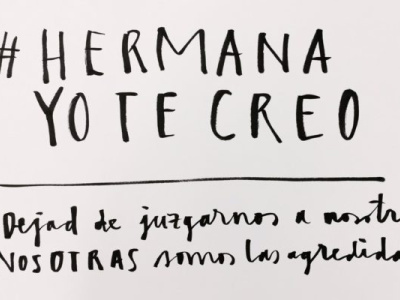 #HERMANA
YO TE CREO
Dejad de juzgarnos a nosotr
NOSOTRAS somos las agredida